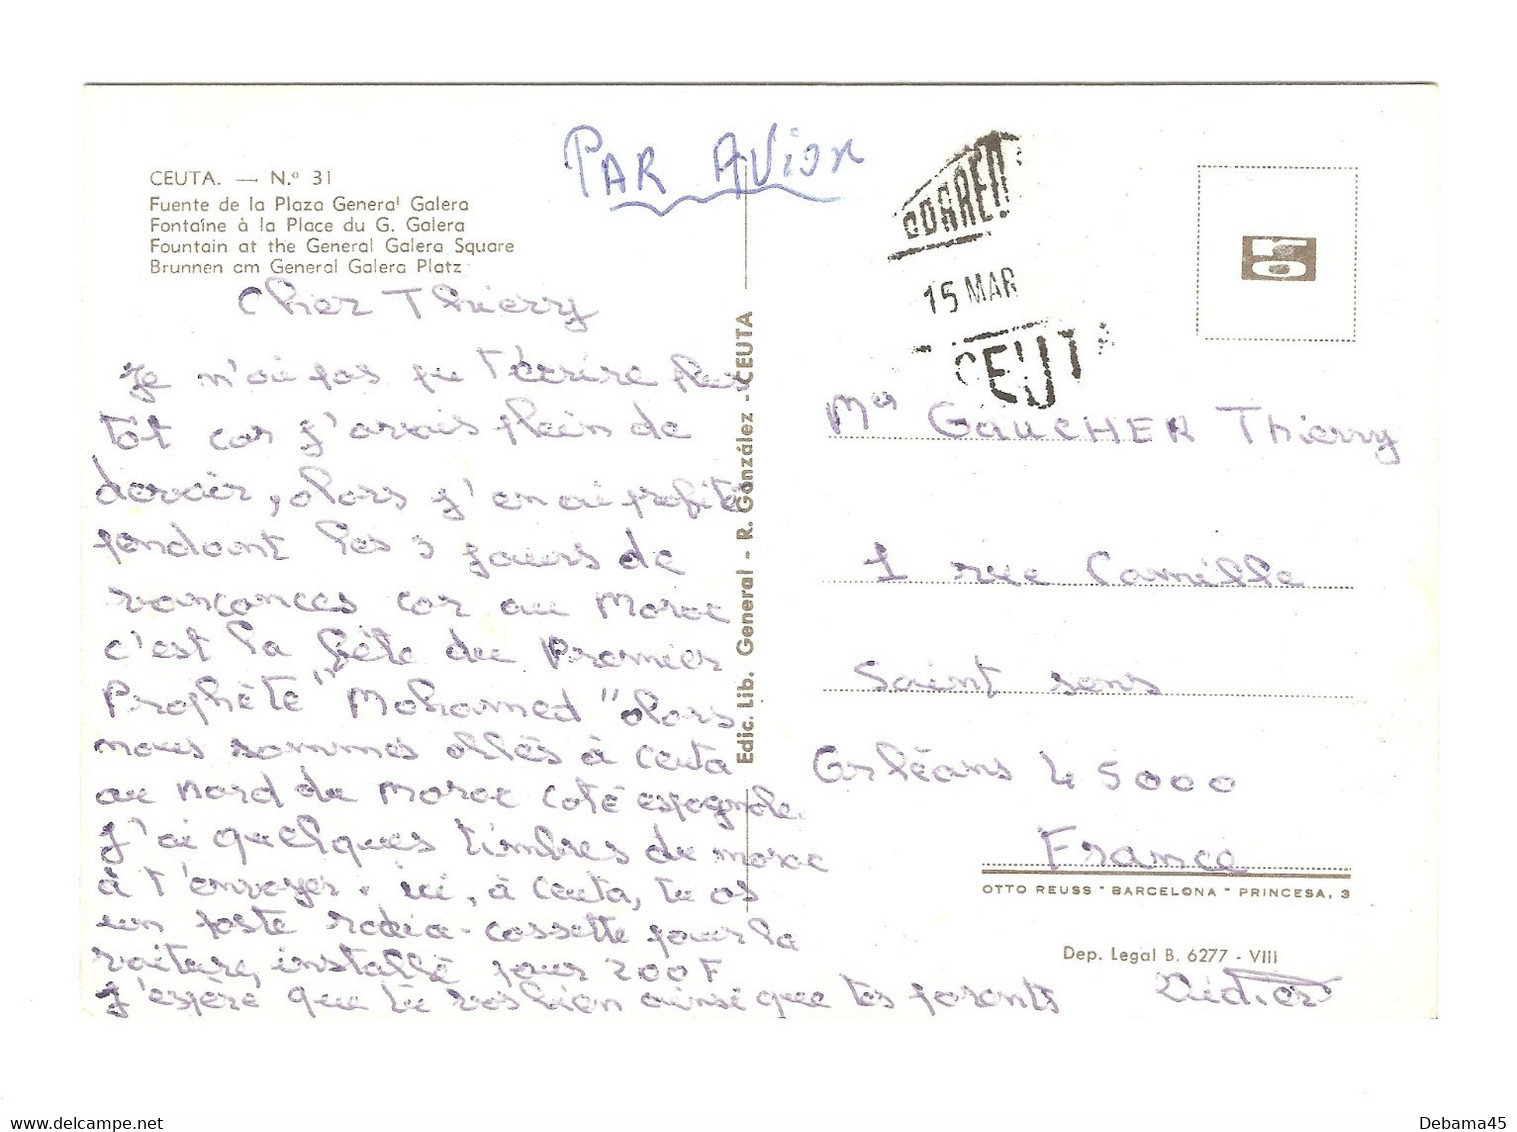 PAR AVION
CEUTA. — N.º 31
Fuente de la Plaza General Galera
Fontaîne à la Place du G. Galera
Fountain at the General Galera Square
Brunnen am General Galera Platz
Cher Thierry
Je n'ai pas pu t'écrire plus
tôt car j'avais plein de
devoir, alors j'en ai profité
pendant les 3 jours de
vancances car au Maroc
c'est la fête du Premier
Prophète "Mohamed" alors
nous sommes allés à Ceuta
au nord du Maroc coté espagnole.
J'ai quelques timbres du maroc
à t'envoyer. ici, à Ceuta, tu as
un poste radio-cassette pour la
voiture, installé pour 200F
J'espère que tu vas bien ainsi que tes parents
Didier
Edic. Lib. General - R. González - CEUTA
CORREO
15 MAR
CEUTA
Mr GAUCHER Thierry
1 rue Camille
Saint sens
Orléans 45000
France
OTTO REUSS "BARCELONA" PRINCESA, 3
Dep. Legal B. 6277 - VIII
Debama45